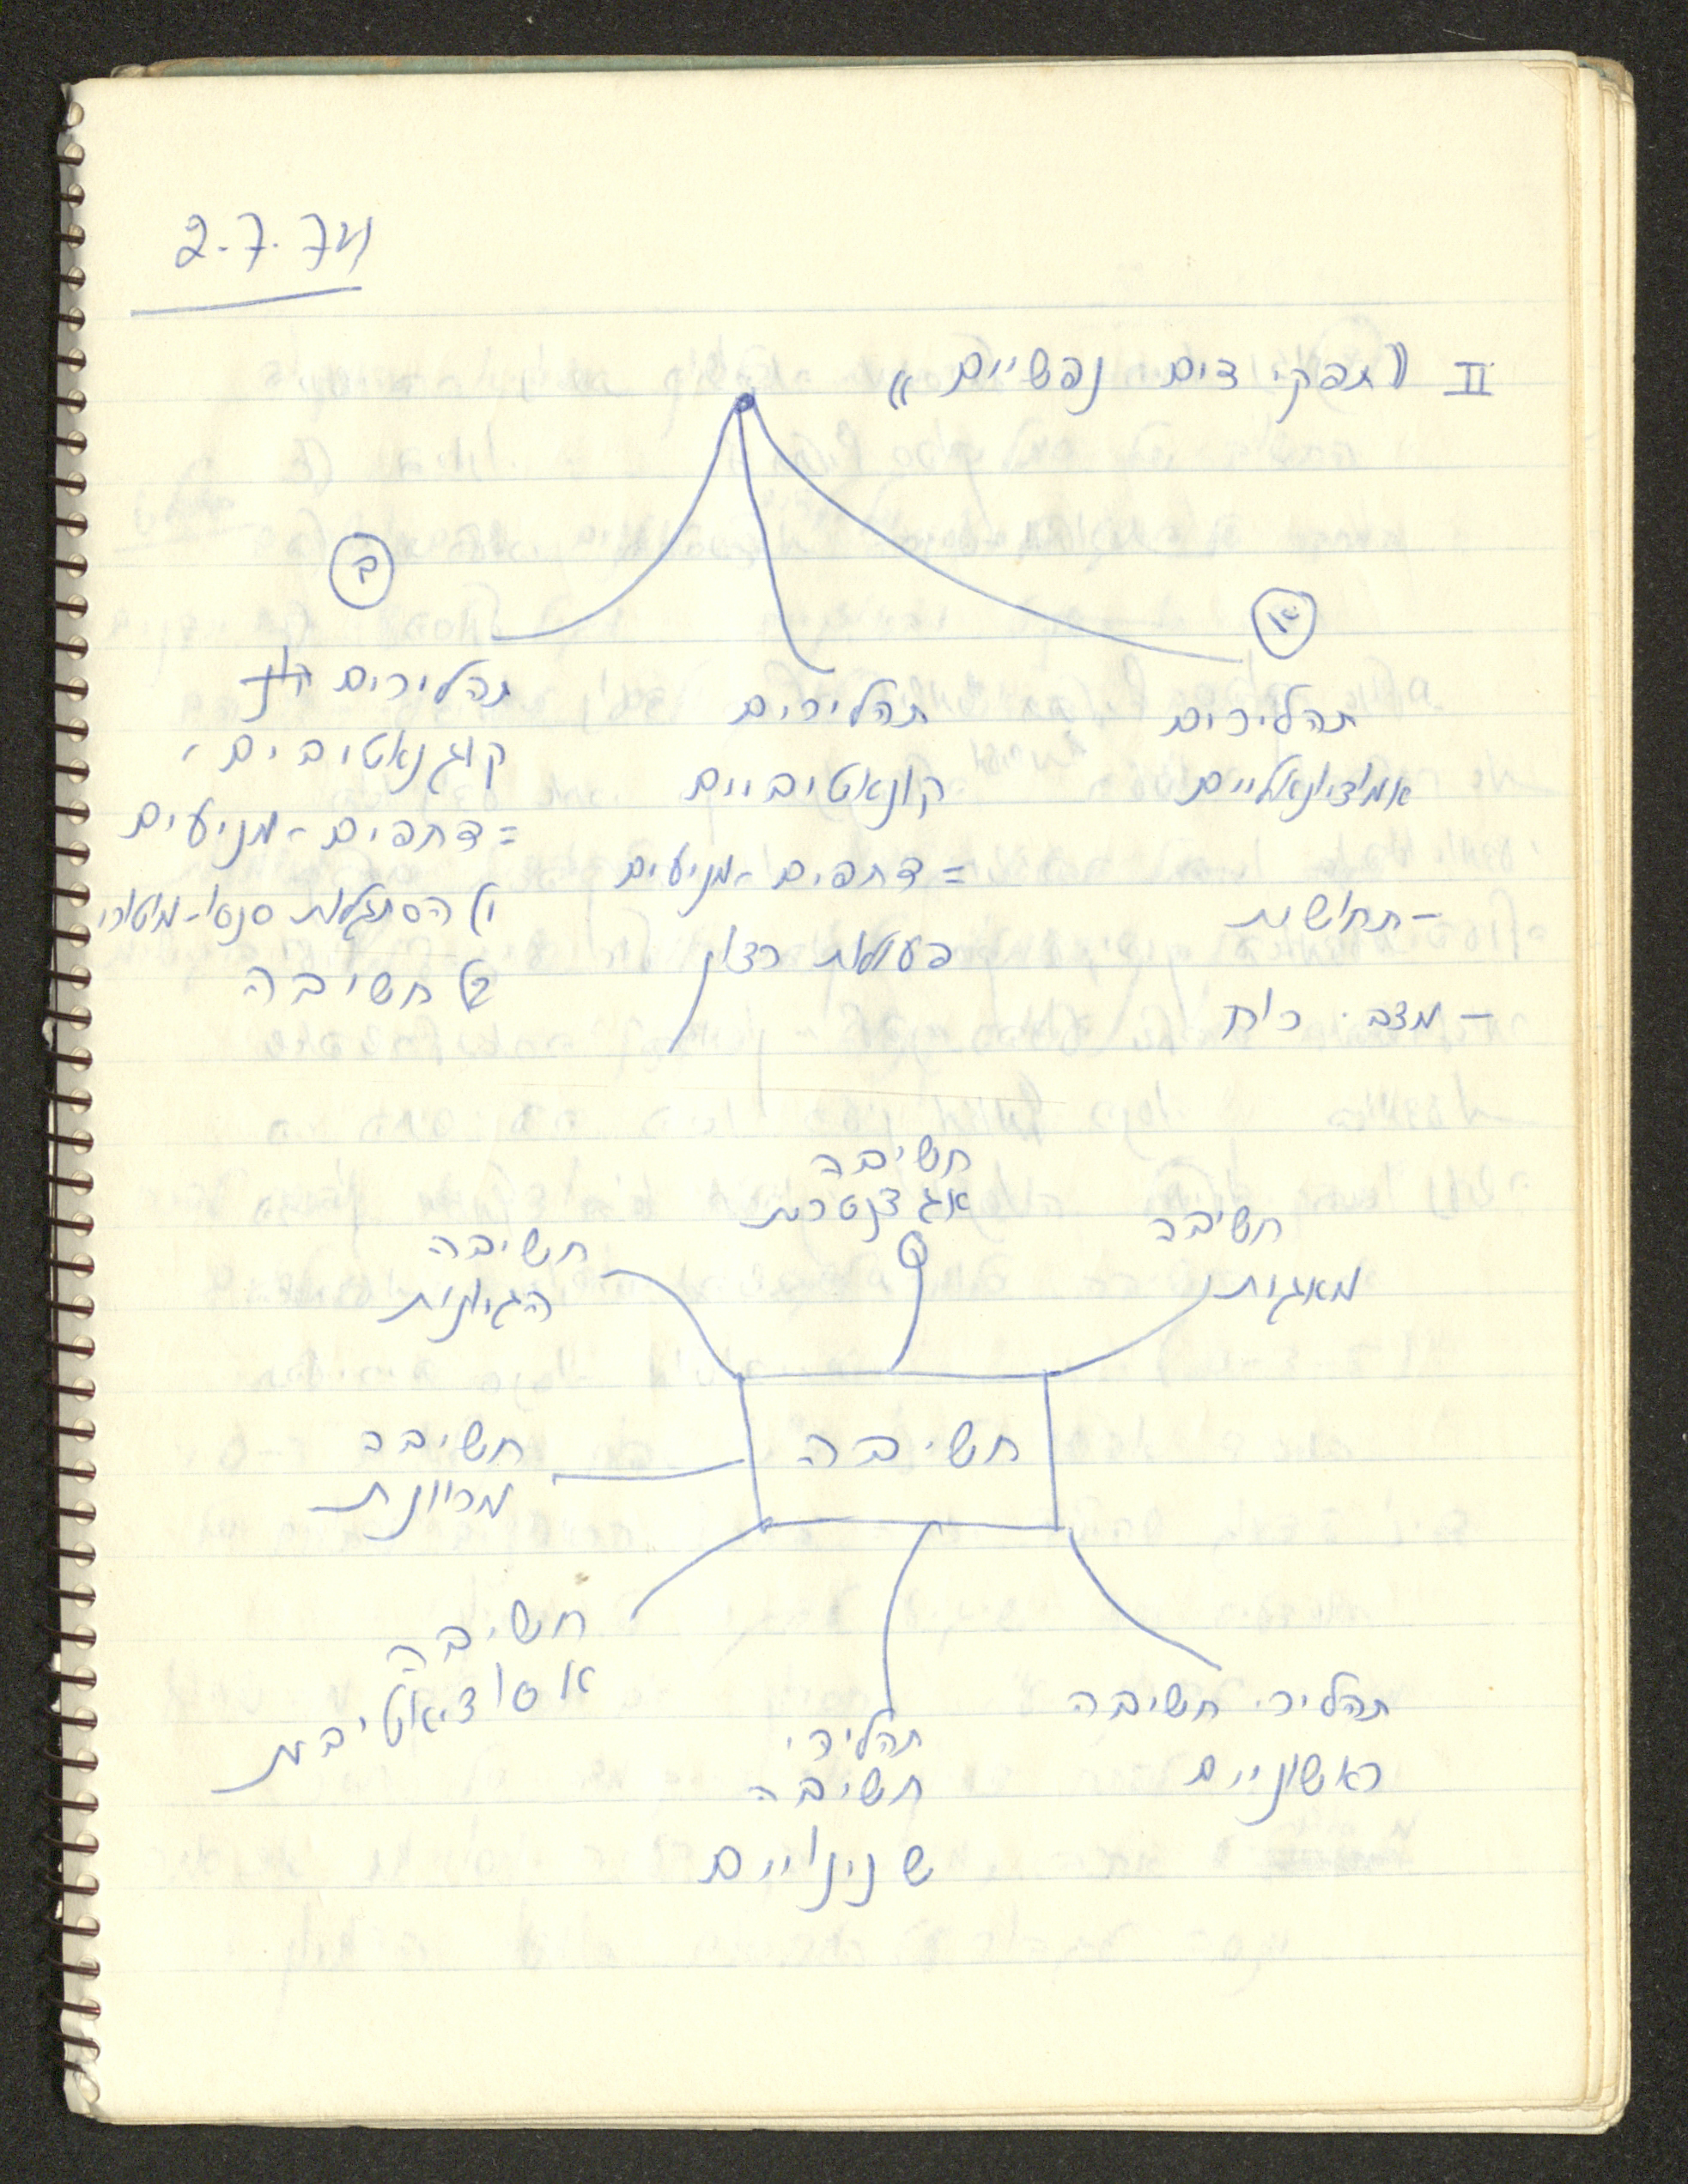 2.7.74
II "תפקידים נפשיים"
א
תהליכים
אמוציונאליים
- תחושות
- מצב רוח
תהליכים
קונאטיביים
= דחפים - מניעים
פעולות רצון
ב
תהליכים
קוגנאטיבים
= דחפים - מניעים
1) הסתגלות סנסו-מוטורי
2) חשיבה
חשיבה
מאגית
חשיבה
אגוצנטרית
חשיבה
הגיונית
חשיבה
חשיבה
מכוונת
חשיבה
אסוציאטיבית
תהליכי
חשיבה
שניוניים
תהליכי חשיבה
ראשוניים